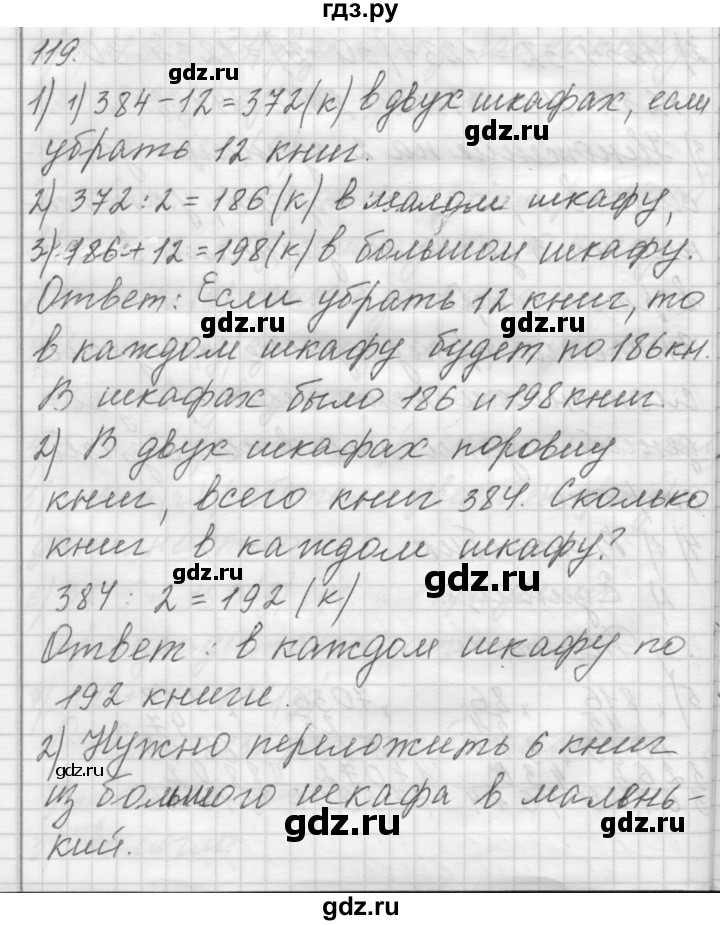 гдз.ру
119.
gdz.ru
1) 1) 384-12=372(к) в двух шкафах, если
gdz.ru
убрать 12 книг.
2) 372:2=186(к) в малом шкафу,
gdz.ru
3) 186+12=198(к) в большом шкафу.
Ответ: Если убрать 12 книг, то
gdz.ru
gdz.ru
в каждом шкафу будет по 186кн.
В шкафах было 186 и 198 книг.
2) В двух шкафах поровну
книг, всего книг 384. Сколько
книг в каждом шкафу?
gdz.ru
gdz.ru
384 : 2=192(к)
Ответ: в каждом шкафу по
192 книги.
2) Нужно переложить 6 книг
gdz.ru
из большого шкафа в малень-
gdz.ru
gdz.ru
кий.
gdz.ru